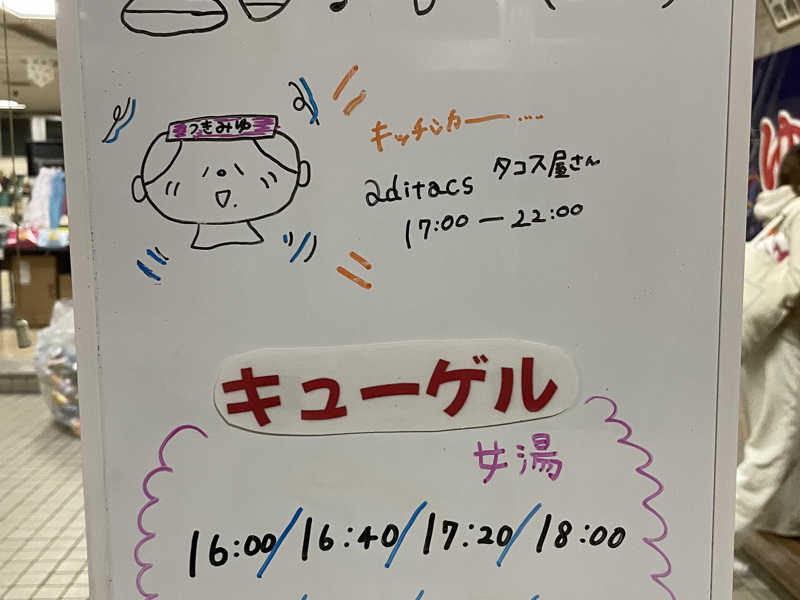 つきみゆ
キッチンカー……
aditacs タコス屋さん
17:00 ー 22:00
キューゲル
女湯
16:00/16:40/17:20/18:00